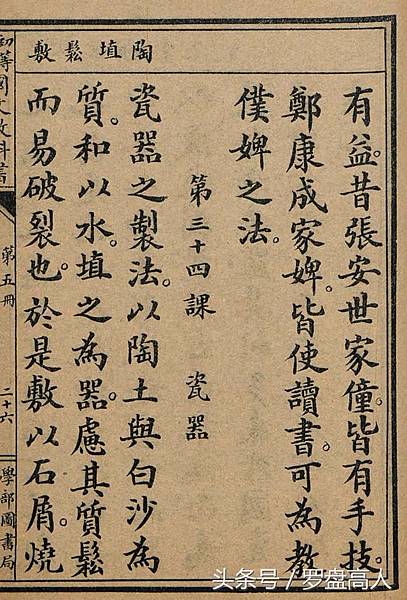 陶埴鬆敷
有益。昔張安世家僮。皆有手技。
鄭康成家婢。皆使讀書。可為教
僕婢之法。
第三十四課 瓷器
瓷器之製法。以陶土與白沙為
質。和以水。埴之為器。慮其質鬆
而易破裂也。於是敷以石屑。燒
初等國文教科書
第五冊
二十六
學部圖書局
头条号/罗盘高人